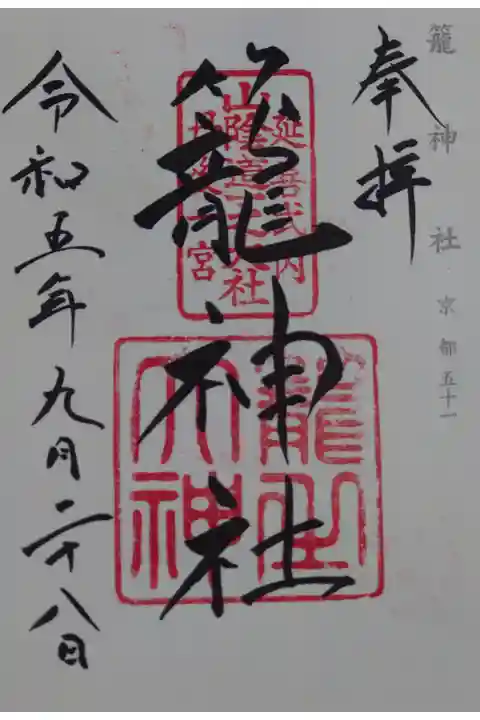 籠神社 京都五十一
奉拝
籠神社
延喜式内
丹後一宮
籠之
大神
令和五年九月二十八日